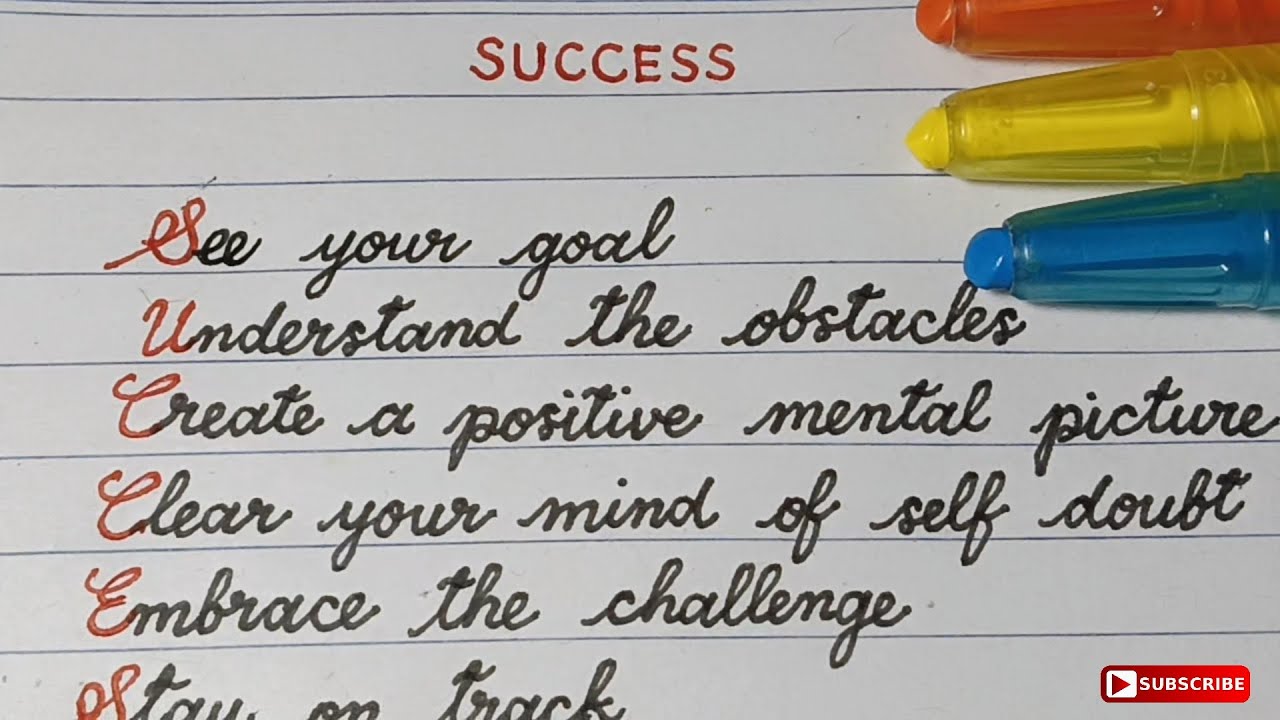 SUCCESS
See your goal
Understand the obstacles
Create a positive mental picture
Clear your mind of self doubt
Embrace the challenge
Stay on track
SUBSCRIBE